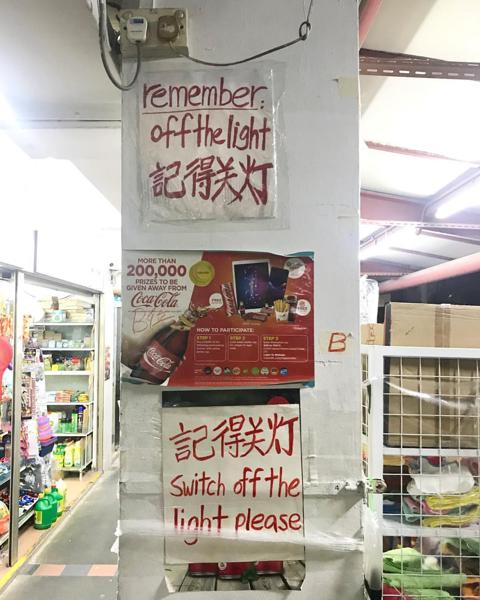 remember:
off the light
記得关灯
MORE THAN
200,000
PRIZES TO BE
GIVEN AWAY FROM
Coca-Cola
HOW TO PARTICIPATE:
STEP 1
STEP 2
STEP 3
Coca-Cola
B
記得关灯
Switch off the
light please